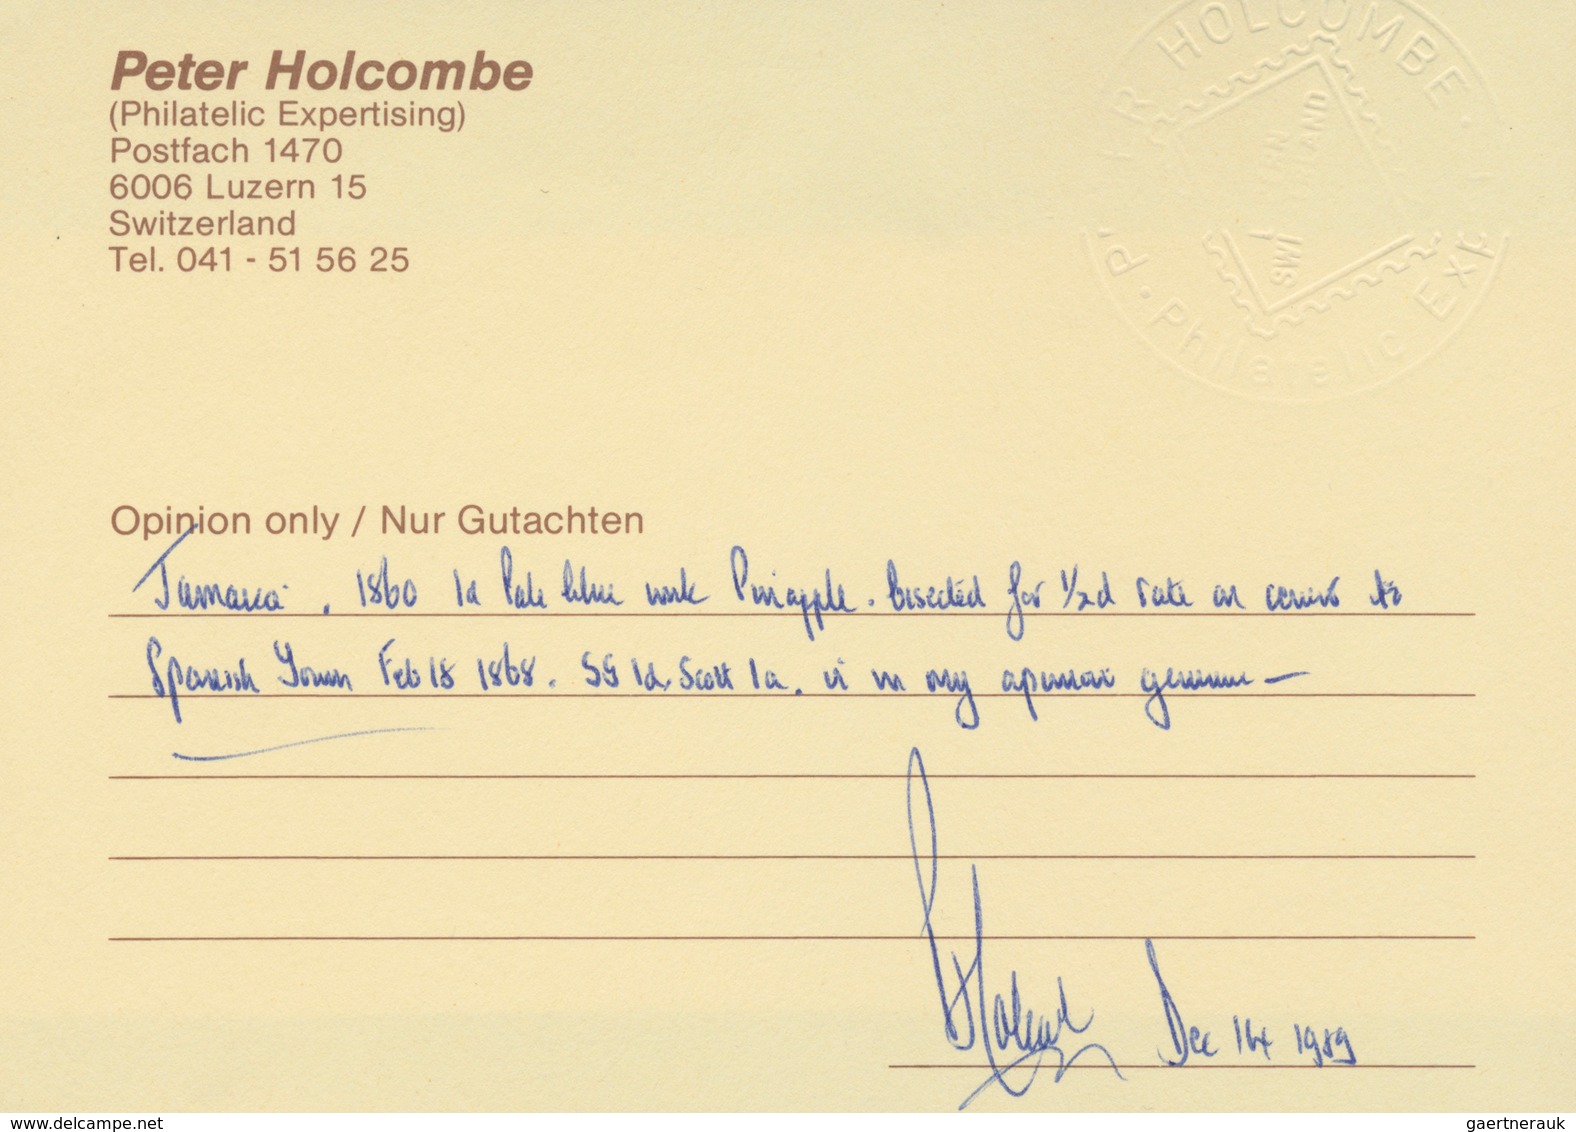 Peter Holcombe
(Philatelic Expertising)
Postfach 1470
6006 Luzern 15
Switzerland
Tel. 041 - 51 56 25
HOLCOMBE
P. Philatelic Exp
Opinion only / Nur Gutachten
Jamaica. 1860 1d Pale blue wmk Pineapple. bisected for 1/2d rate on cover to
Spanish Town Feb 18 1868. SG 1d. Scott 1a. is in my opinion genuine —
PHolcombe Dec 14 1989
www.delcampe.net
gaertnerauk